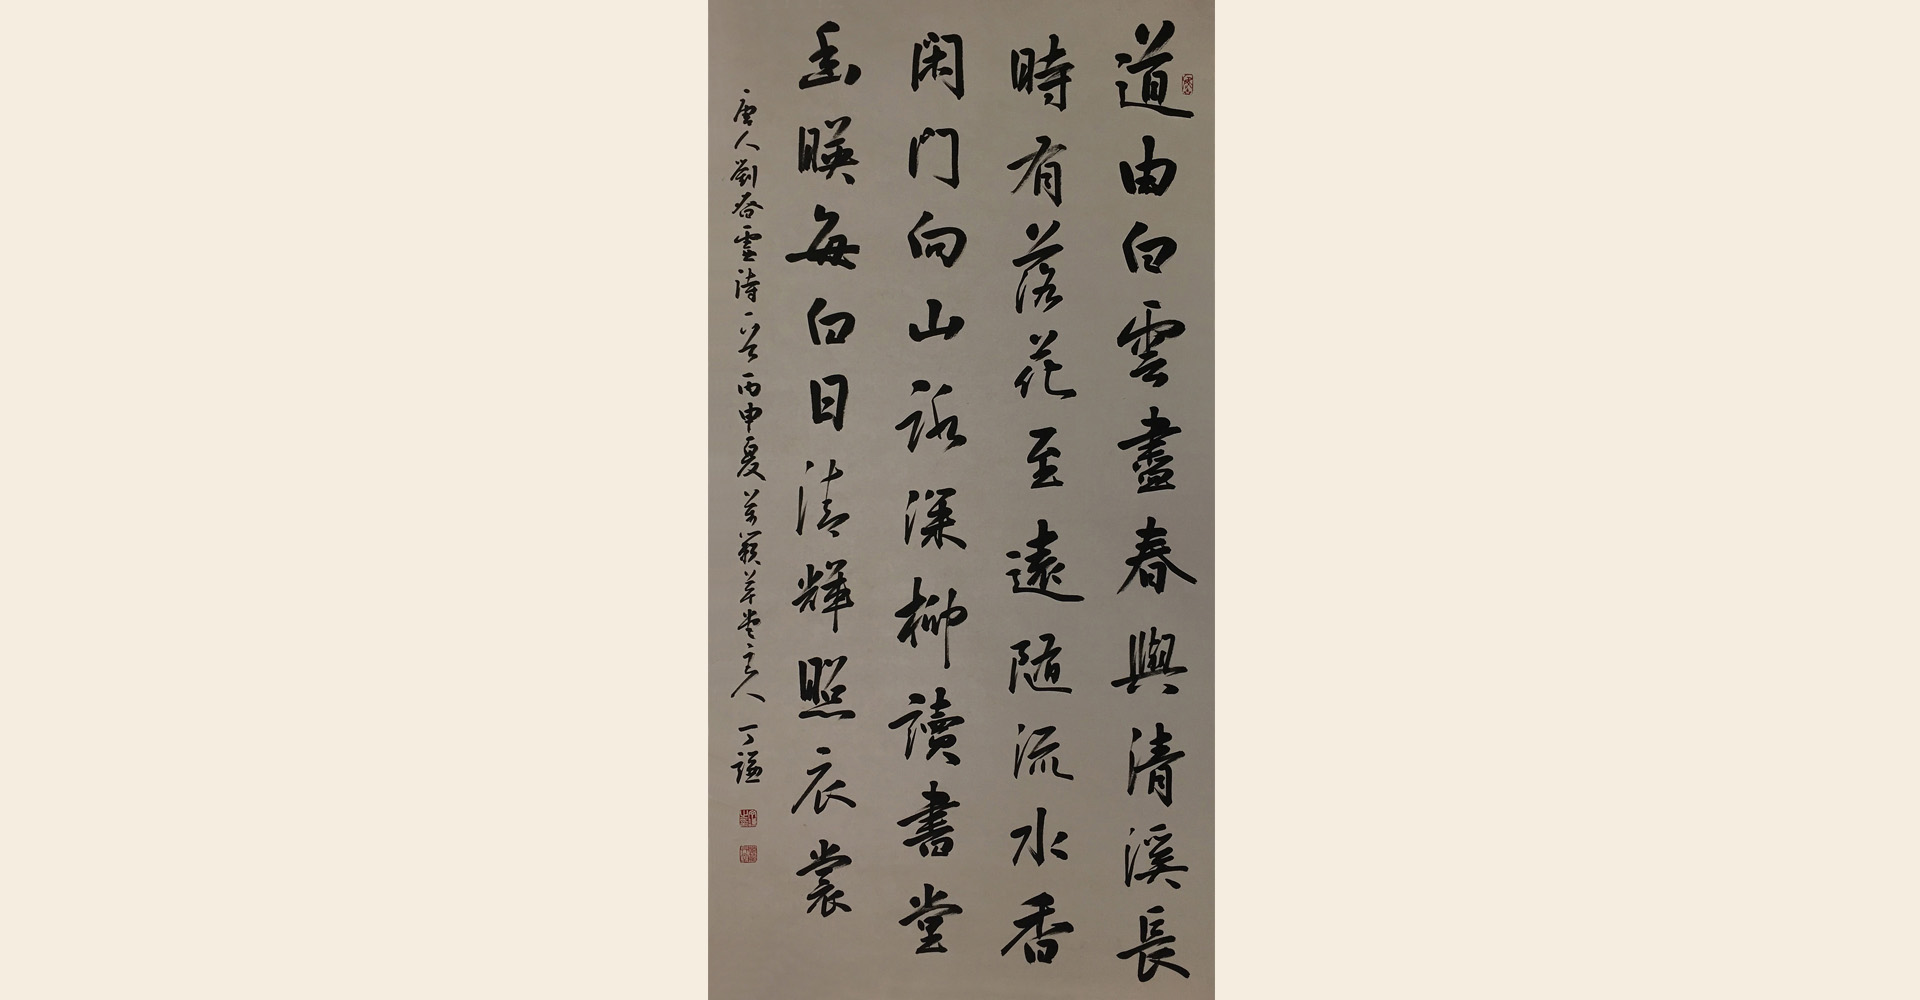 道由白雲盡春與清溪長
時有落花至遠隨流水香
閑門向山路深柳讀書堂
幽暎每白日清輝照衣裳
唐人劉昚虛詩一首丙申夏萬籟草堂主人丁謙